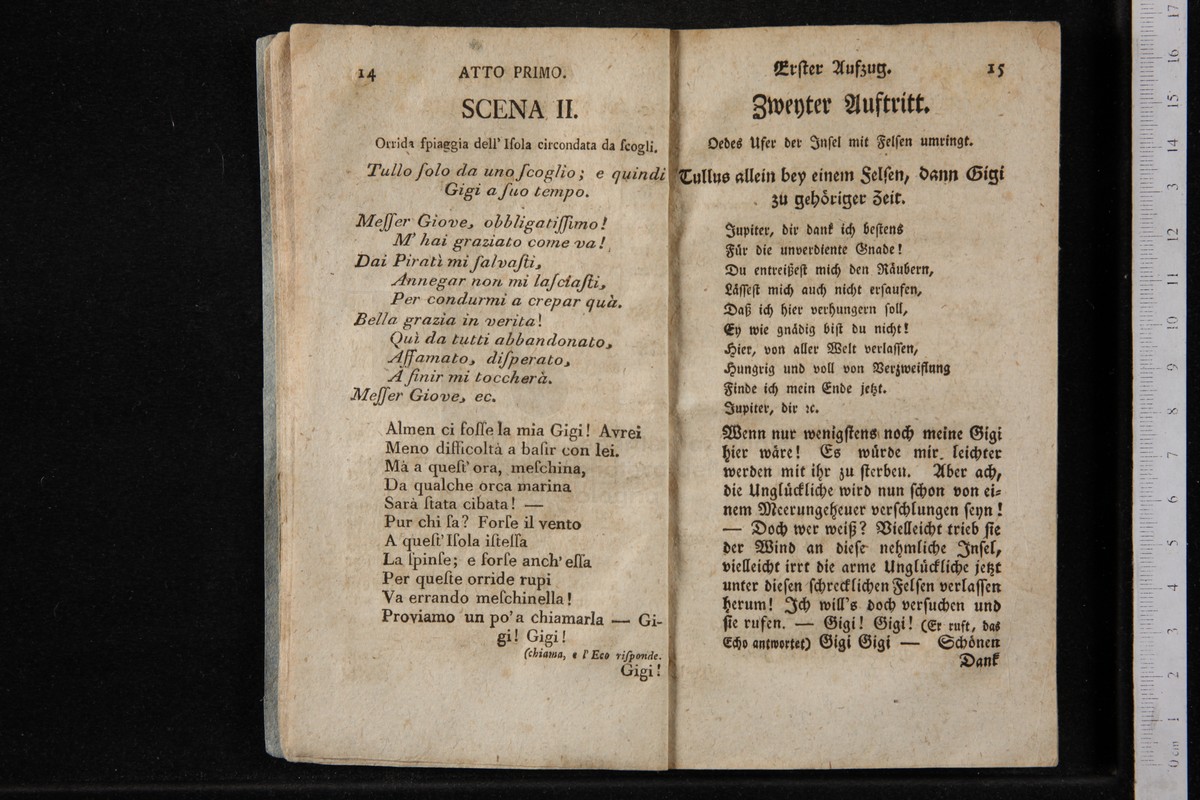 14 ATTO PRIMO.
SCENA II.
Orrida ſpiaggia dell' Iſola circondata da ſcogli.
Tullo ſolo da uno ſcoglio; e quindi
Gigi a ſuo tempo.
Meſſer Giove, obbligatiſſimo!
M' hai graziato come va!
Dai Piratì mi ſalvaſti,
Annegar non mi laſciaſti,
Per condurmi a crepar quà.
Bella grazia in verita!
Quì da tutti abbandonato,
Affamato, diſperato,
A finir mi toccherà.
Meſſer Giove, ec.
Almen ci foſſe la mia Gigi! Avrei
Meno difficoltà a baſir con lei.
Mà a queſt' ora, meſchina,
Da qualche orca marina
Sarà ſtata cibata! —
Pur chi ſa? Forſe il vento
A queſt' Iſola iſteſſa
La ſpinſe; e forſe anch' eſſa
Per queſte orride rupi
Va errando meſchinella!
Proviamo un po' a chiamarla — Gi-
gi! Gigi!
(chiama, e l' Eco riſponde.
Gigi!
Erſter Aufzug. 15
Zweyter Auftritt.
Oedes Ufer der Inſel mit Felſen umringt.
Tullus allein bey einem Felſen, dann Gigi
zu gehöriger Zeit.
Jupiter, dir dank ich beſtens
Für die unverdiente Gnade!
Du entreißeſt mich den Räubern,
Läſſeſt mich auch nicht erſaufen,
Daß ich hier verhungern ſoll,
Ey wie gnädig biſt du nicht!
Hier, von aller Welt verlaſſen,
Hungrig und voll von Verzweiflung
Finde ich mein Ende jetzt.
Jupiter, dir ꝛc.
Wenn nur wenigſtens noch meine Gigi
hier wäre! Es würde mir leichter
werden mit ihr zu ſterben. Aber ach,
die Unglückliche wird nun ſchon von ei⸗
nem Meerungeheuer verſchlungen ſeyn!
— Doch wer weiß? Vielleicht trieb ſie
der Wind an dieſe nehmliche Inſel,
vielleicht irrt die arme Unglückliche jetzt
unter dieſen ſchrecklichen Felſen verlaſſen
herum! Ich will's doch verſuchen und
ſie rufen. — Gigi! Gigi! (Er ruft, das
Echo antwortet) Gigi Gigi — Schönen
Dank
0 cm 1 2 3 4 5 6 7 8 9 10 11 12 13 14 15 16 17